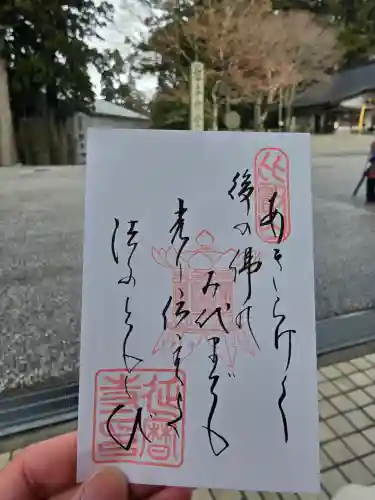 比叡山
あきらけく
後の佛の
み代までも
光伝へよ
法のともしび